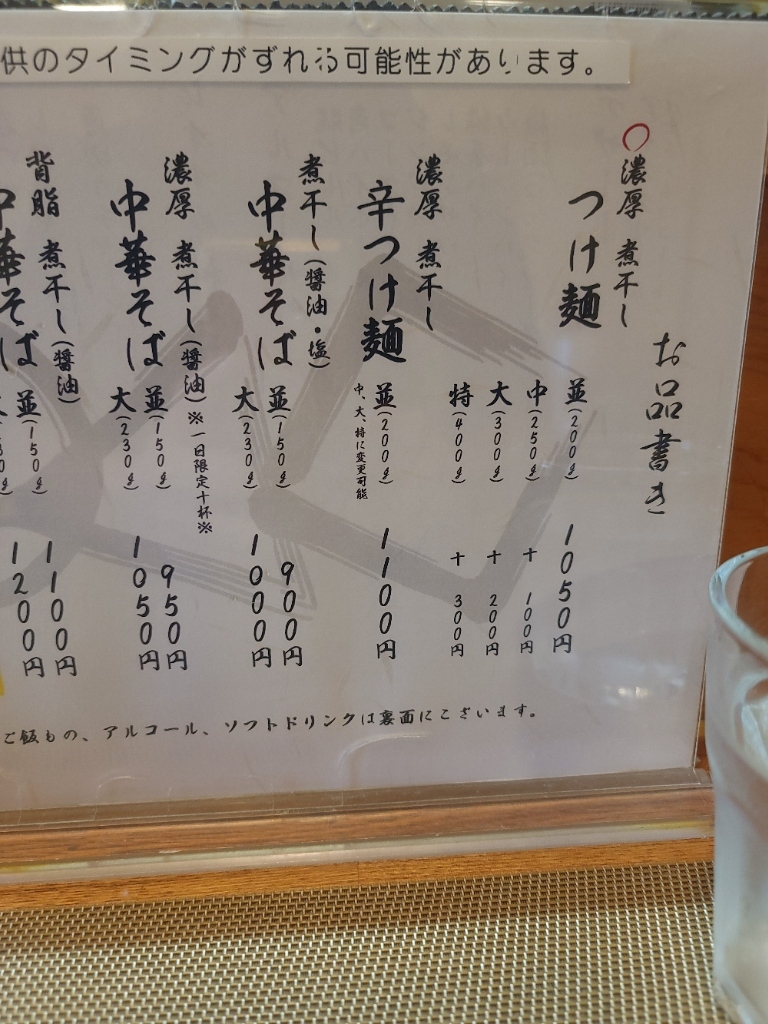 供のタイミングがずれる可能性があります。
お品書き
濃厚 煮干し
つけ麺
並(200g) 1050円
中(250g) + 100円
大(300g) + 200円
特(400g) + 300円
濃厚 煮干し
辛つけ麺
並(200g) 1100円
中、大、特に変更可能
煮干し(醤油・塩)
中華そば
並(150g) 900円
大(230g) 1000円
濃厚 煮干し(醤油)※一日限定十杯※
中華そば
並(150g) 950円
大(230g) 1050円
背脂 煮干し(醤油)
中華そば
並(150g) 1100円
大(230g) 1200円
ご飯もの、アルコール、ソフトドリンクは裏面にございます。